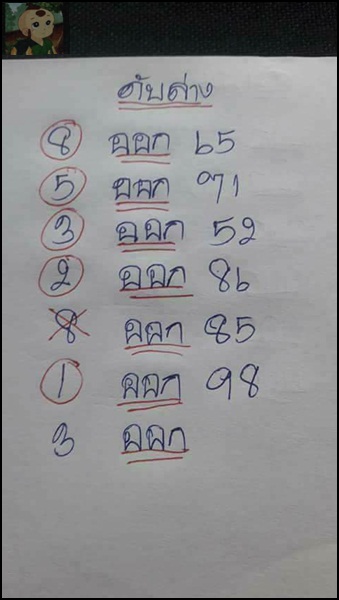 ดับล่าง
8 ออก 65
5 ออก 71
3 ออก 52
2 ออก 86
8 ออก 85
1 ออก 98
3 ออก